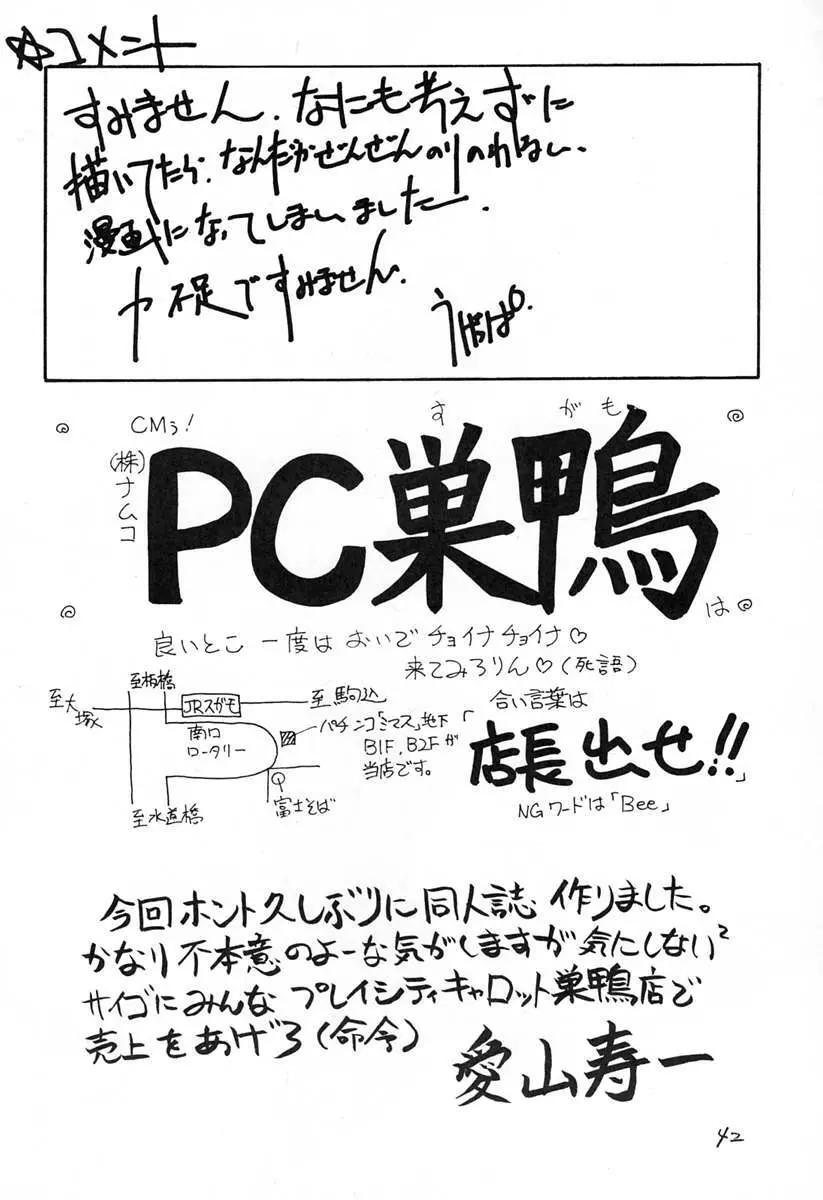 ☆コメント
すみません、なにも考えずに
描いてたら、なんだかぜんぜんのりのわるい、
漫画になってしまいました。
力不足ですみません。
CMぅ!
(株)ナムコ
すがも
PC巣鴨
は
良いとこ 一度は おいで チョイナチョイナ♡
来てみろりん♡(死語)
至板橋
至大塚
JRスガモ
至駒込
南口
ロータリー
パチンコ「ミマス」地下
B1F,B2Fが
当店です。
至水道橋
富士そば
合い言葉は
「店長出せ!!」
NGワードは「Bee」
今回ホント久しぶりに同人誌 作りました。
かなり不本意のよーな気がしますが気にしない²
サイゴにみんな プレイシティキャロット巣鴨店で
売上をあげろ(命令)
愛山寿一
42